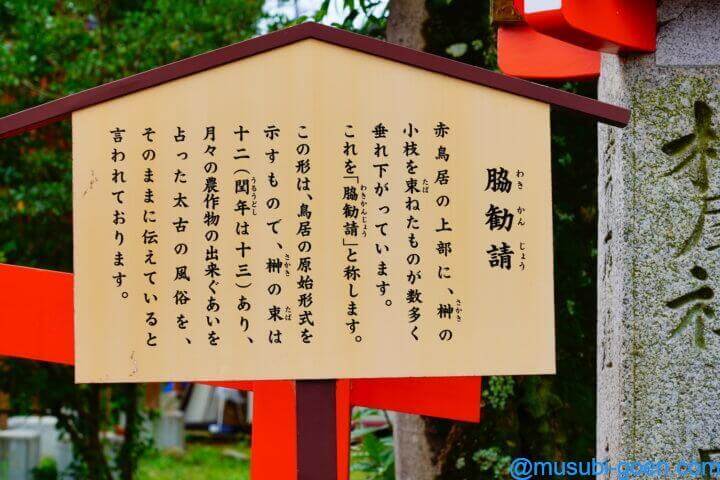 脇勧請
わきかんじょう
赤鳥居の上部に、榊の
さかき
小枝を束ねたものが数多く
たば
垂れ下がっています。
これを「脇勧請」と称します。
わきかんじょう
この形は、鳥居の原始形式を
示すもので、榊の束は
さかき たば
十二（閏年は十三）あり、
うるうどし
月々の農作物の出来ぐあいを
占った太古の風俗を、
そのままに伝えていると
言われております。
@musubi-goen.com